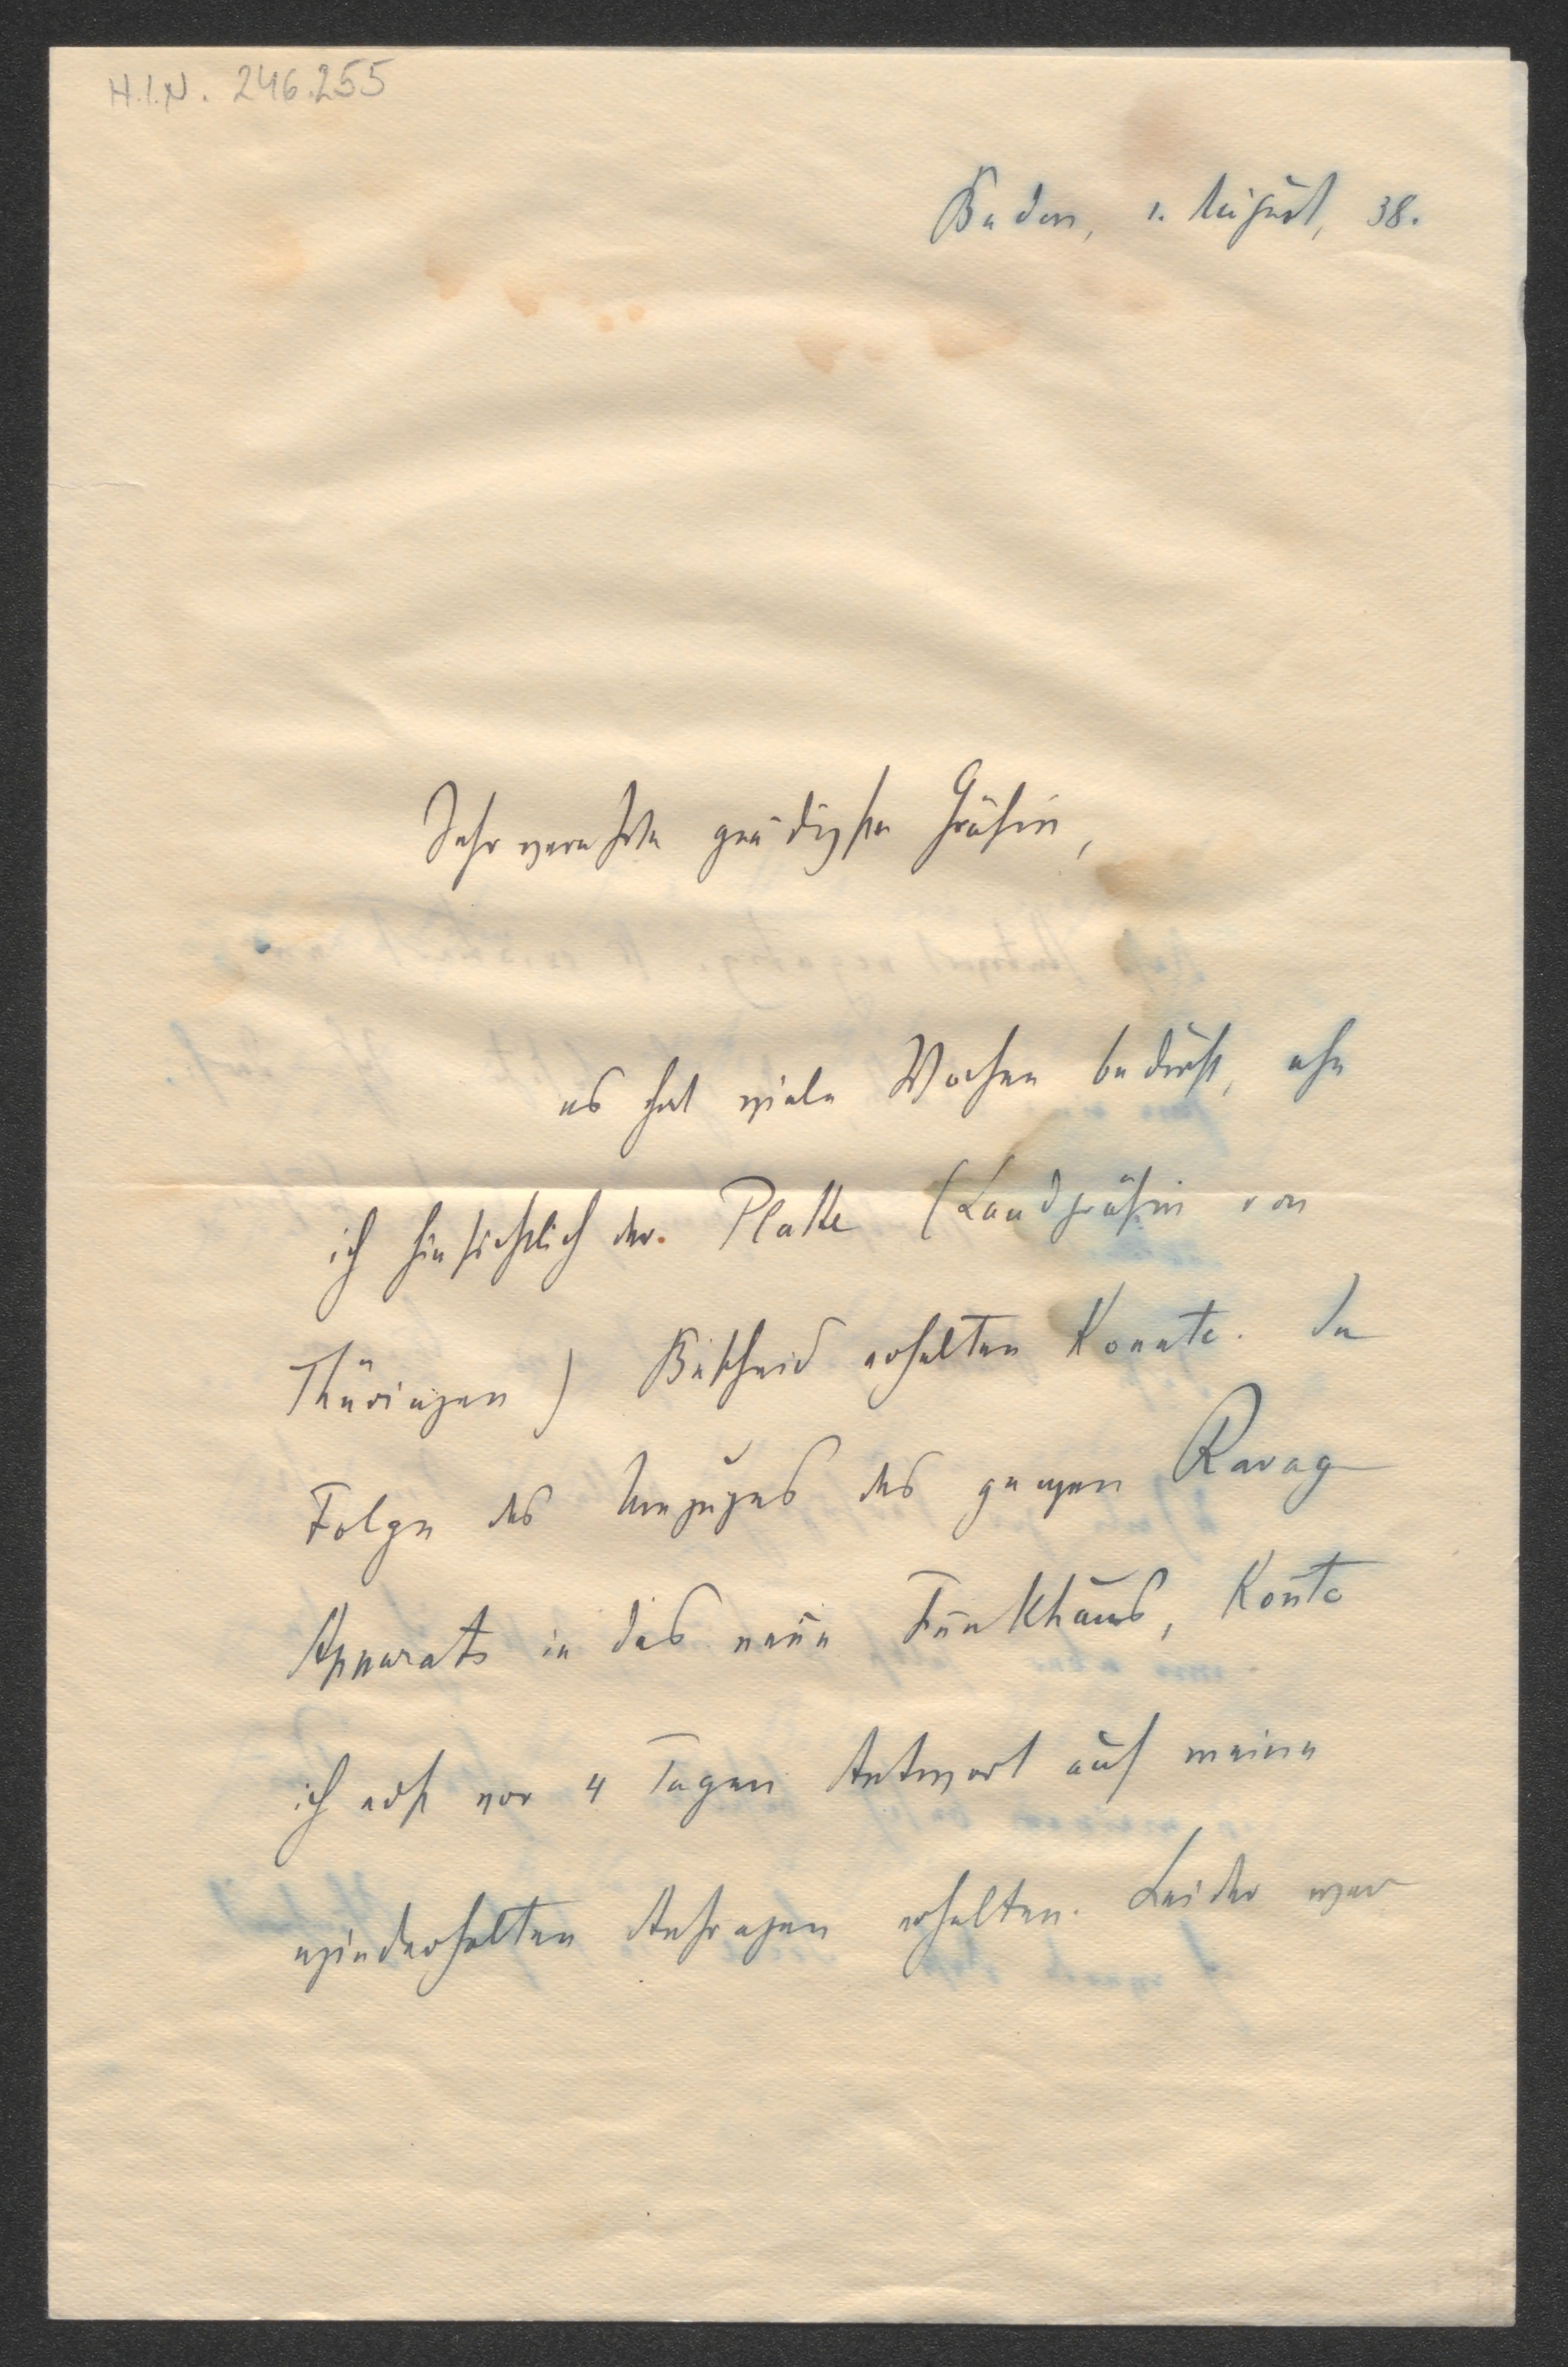 H.I.N. 246.255
Baden, 1. August, 38.
Sehr verehrte gnädigste Gräfin,
es hat viele Wochen bedurft, ehe
ich hinsichtlich der Platte (Landgräfin von
Thüringen) Bescheid erhalten konnte. In
Folge des Umzuges des ganzen Ravag
Apparats in das neue Funkhaus, konnte
ich erst vor 4 Tagen Antwort auf meine
wiederholten Anfragen erhalten. Leider war